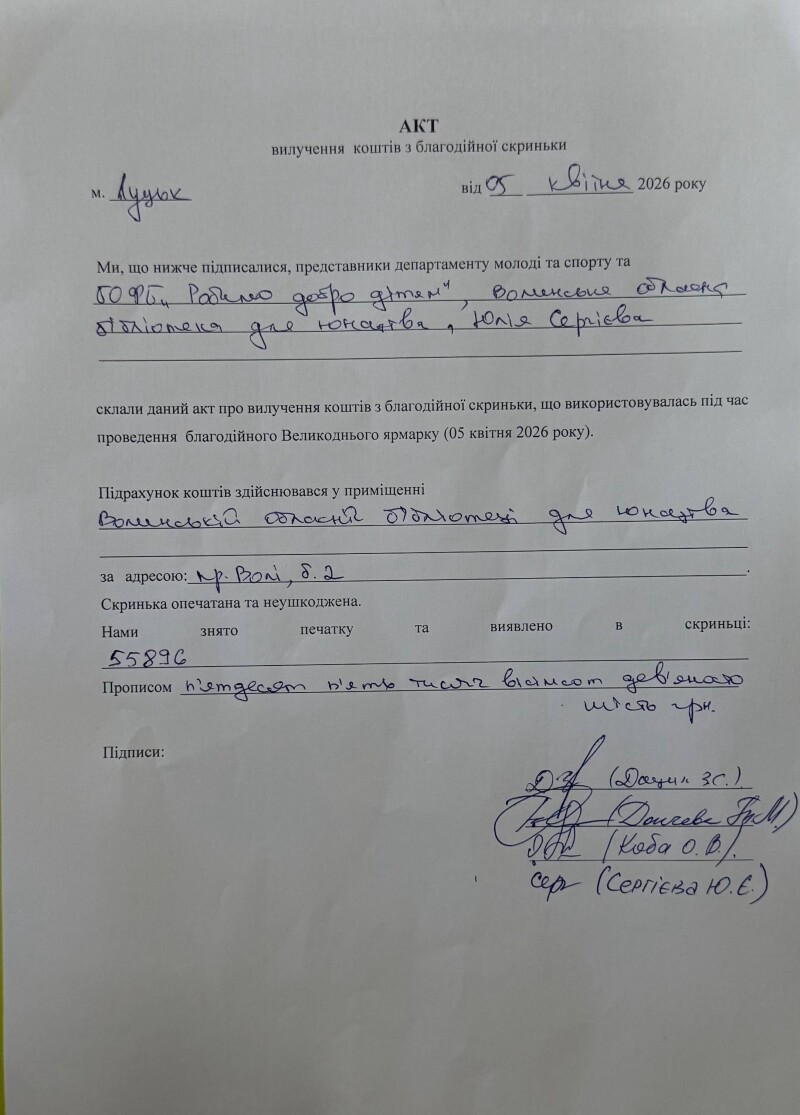 АКТ
вилучення коштів з благодійної скриньки
м. Луцьк від 05 квітня 2026 року
Ми, що нижче підписалися, представники департаменту молоді та спорту та
"Робимо добро дітям", Волинська обласна
бібліотека для юнацтва, Юлія Сергієва
склали даний акт про вилучення коштів з благодійної скриньки, що використовувалась під час
проведення благодійного Великоднього ярмарку (05 квітня 2026 року).
Підрахунок коштів здійснювався у приміщенні
Волинській обласній бібліотеці для юнацтва
за адресою: пр. Волі, б. 2.
Скринька опечатана та неушкоджена.
Нами знято печатку та виявлено в скриньці:
55896
Прописом п'ятдесят п'ять тисяч вісімсот дев'яносто
шість грн.
Підписи:
(Дацик З.С.)
(Коба О.В.).
Сер (Сергієва Ю.Є.)